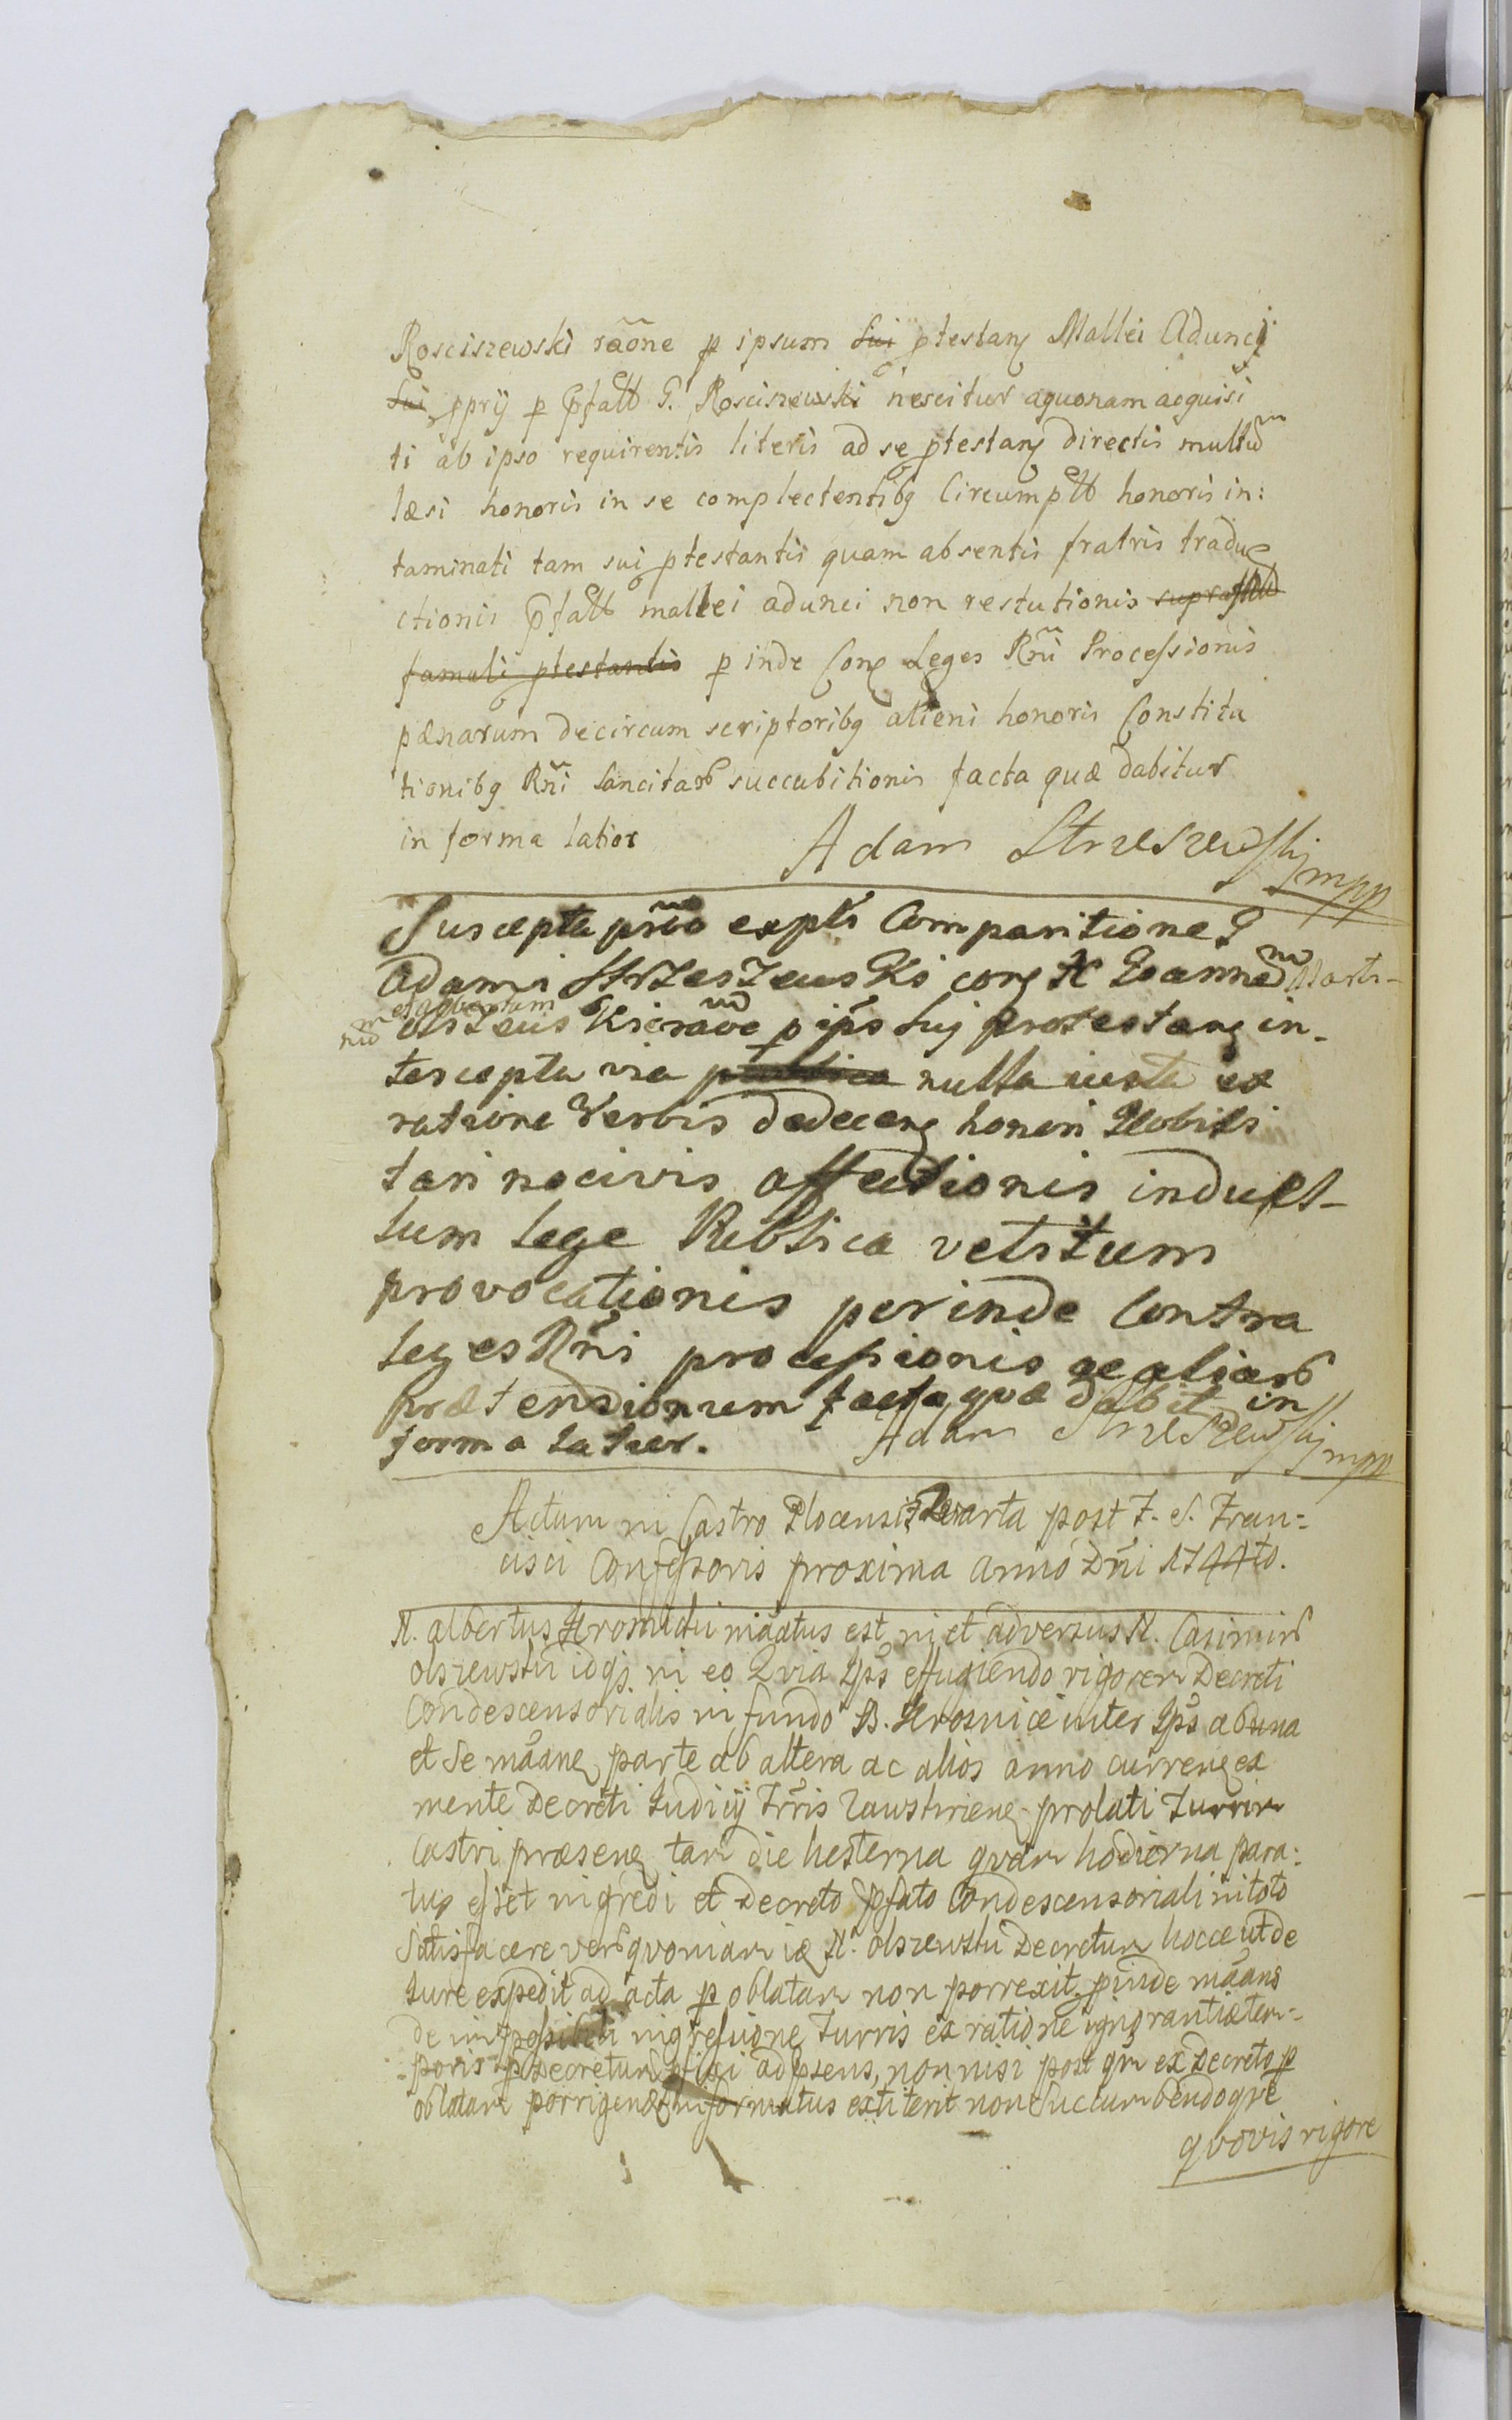 Rosciszewski raõne p ipsum sui ptestanς Mallei Adunci
sui pprÿ p pfatt G. Rosciszewski nescitur aquonam acquisi
ti ab ipso requirentis literis ad se ptestanς directis multũ
læsi honoris in se complectentibq Circumptt honoris in:
taminati tam sui ptestantis quam absentis fratris tradu
ctionis pfatt mallei adunci non restutionis
famuli ptestantis p inde Conς Leges Rñi Processionis
pænarum de circum scriptoribq alieni honoris Constitu
tionibq Rñi Sancitarō succubitionis facta quæ dabitur
in forma latior
Adam Strzeszewskj mpp
Suscepta exptis Comparitione G
Adami Strzeszewski conς N Ioannem Marti-
num et Albertum Olszewski raõe p ips suj protestanς in-
tercepta via publica nulla iusta ex
ratione Verbis dedecenς honori Nobili
tari nocivis affectionis in duel-
lum lege Publica vetitum
provocationis perinde Contra
leges Rñi processionis ac aliarō
prætensionum facta quæ dabit in
forma latior.
Adam Strzeszewskj mpp
Actum in Castro Plocensi Quarta post F. S. Fran-
cisci Confessoris proxima Anno Dñi 1744to.
N. Albertus Kromicki mãatus est in et adversus N. Casimirũ
Olszewski idqꝫ in eo Quia Ips effugiendo rigorem Decreti
Condescensorialis in fundo B. inter Ips ab una
et Se mãanς parte ab altera ac alios anno currenς ex
mente Decreti Iudicij Trris Zawskrienς prolati Turrim
Castri præsenς tam die hesterna quam hodierna para:
tus esset ingredi et Decreto pfato Condescensoriali in toto
Satisfacere verũ quoniam N. Olszewski Decretum hocce ut de
Iure expedit ad acta p oblatam non porrexit pinde mãans
de impossibili ingressione Turris ex ratione ignorantiæ tem-
poris p Decretum pfixi ad psens, non nisi post qm ex Decreto p
oblatam porrigenς informatus extiterit non Succumbendoqꝫ
quovis rigore